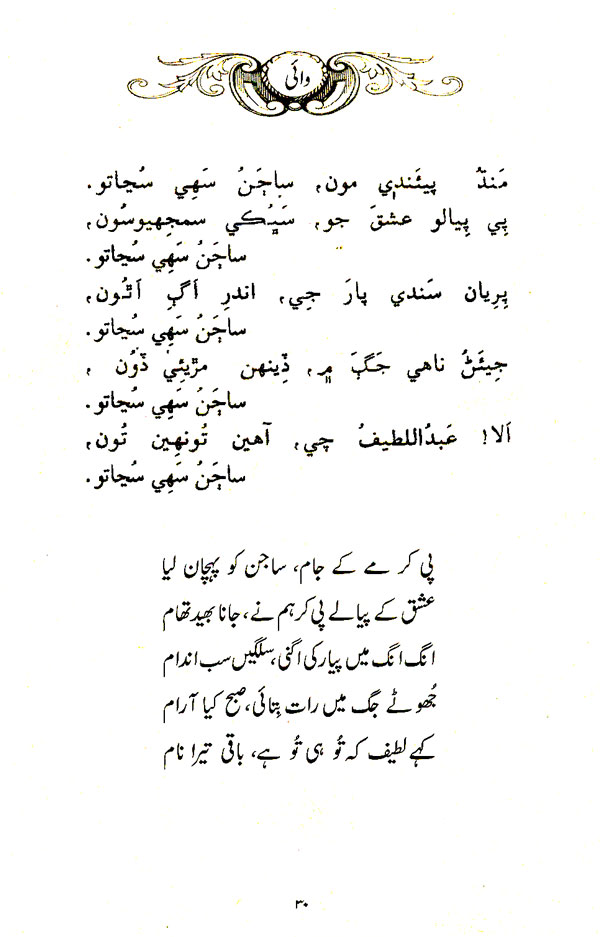 وائي
مَنڌُ پيئَندي مون، ساڄَنُ سَهِي سڃاتو.
پِي پِيالو عشقَ جو، سَڀُڪي سمجهيوسُون،
ساڄَنُ سَهِي سڃاتو.
پِرِيان سَندي پارَ جِي، اندرِ آڳِ اَٿُون،
ساڄَنُ سَهِي سڃاتو.
جِيئَڻُ ناهي جَڳَ ۾، ڏِينهن مڙيئِي ڏُون،
ساڄَنُ سَهِي سڃاتو.
اَلا! عَبدُاللطيفُ چي، آهين تُونهِين تُون،
ساڄَنُ سَهِي سڃاتو.
پی کر مے کے جام، ساجن کو پہچان لیا
عشق کے پیالے پی کر ہم نے، جانا بھید تمام
انگ انگ میں پیار کی اگنی، سلگیں سب اندام
جُھوٹے جگ میں رات بِتائی، صبح کیا آرام
کہے لطیف کہ تُو ہی تُو ہے، باقی تیرا نام
۳۰